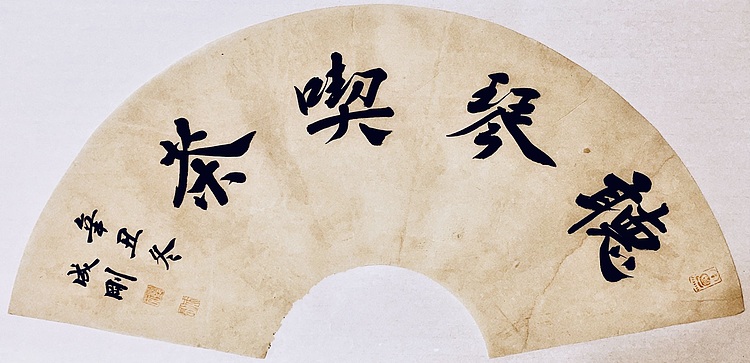 聽琴喫茶
辛丑冬
成剛